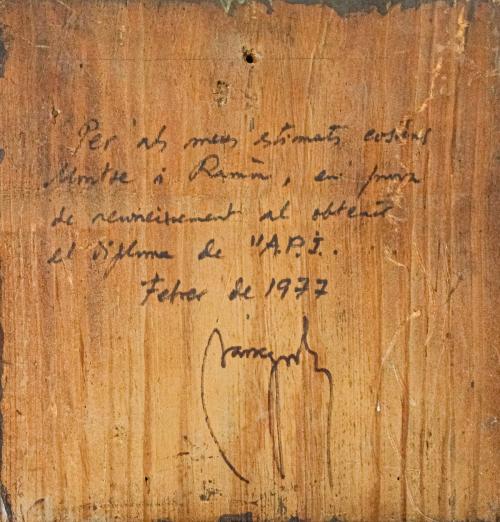 Per als meus estimats cosins
Montse i Ramón, en prova
de reconeixement al obtenir
el diploma de "A.P.I.
Febrer de 1977